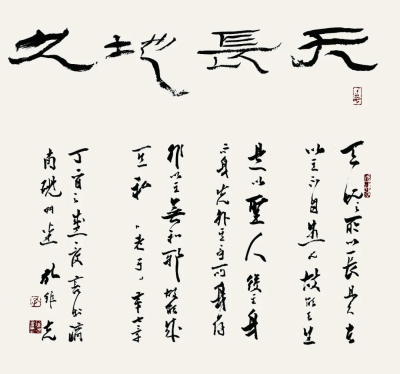 天長地久
天地之所以長且久者
以其不自生也故能長生
是以聖人後其身
而身先外其身而身存
非以其無私耶故能成
其私老子第七章
丁亥之歲書於濟
南孔維克